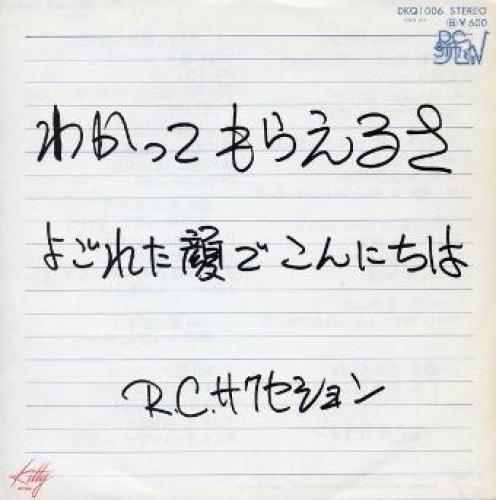 DKQ1006 STEREO
Ⓑ¥600
わかってもらえるさ
よごれた顔でこんにちは
R.C.サクセション
Kitty